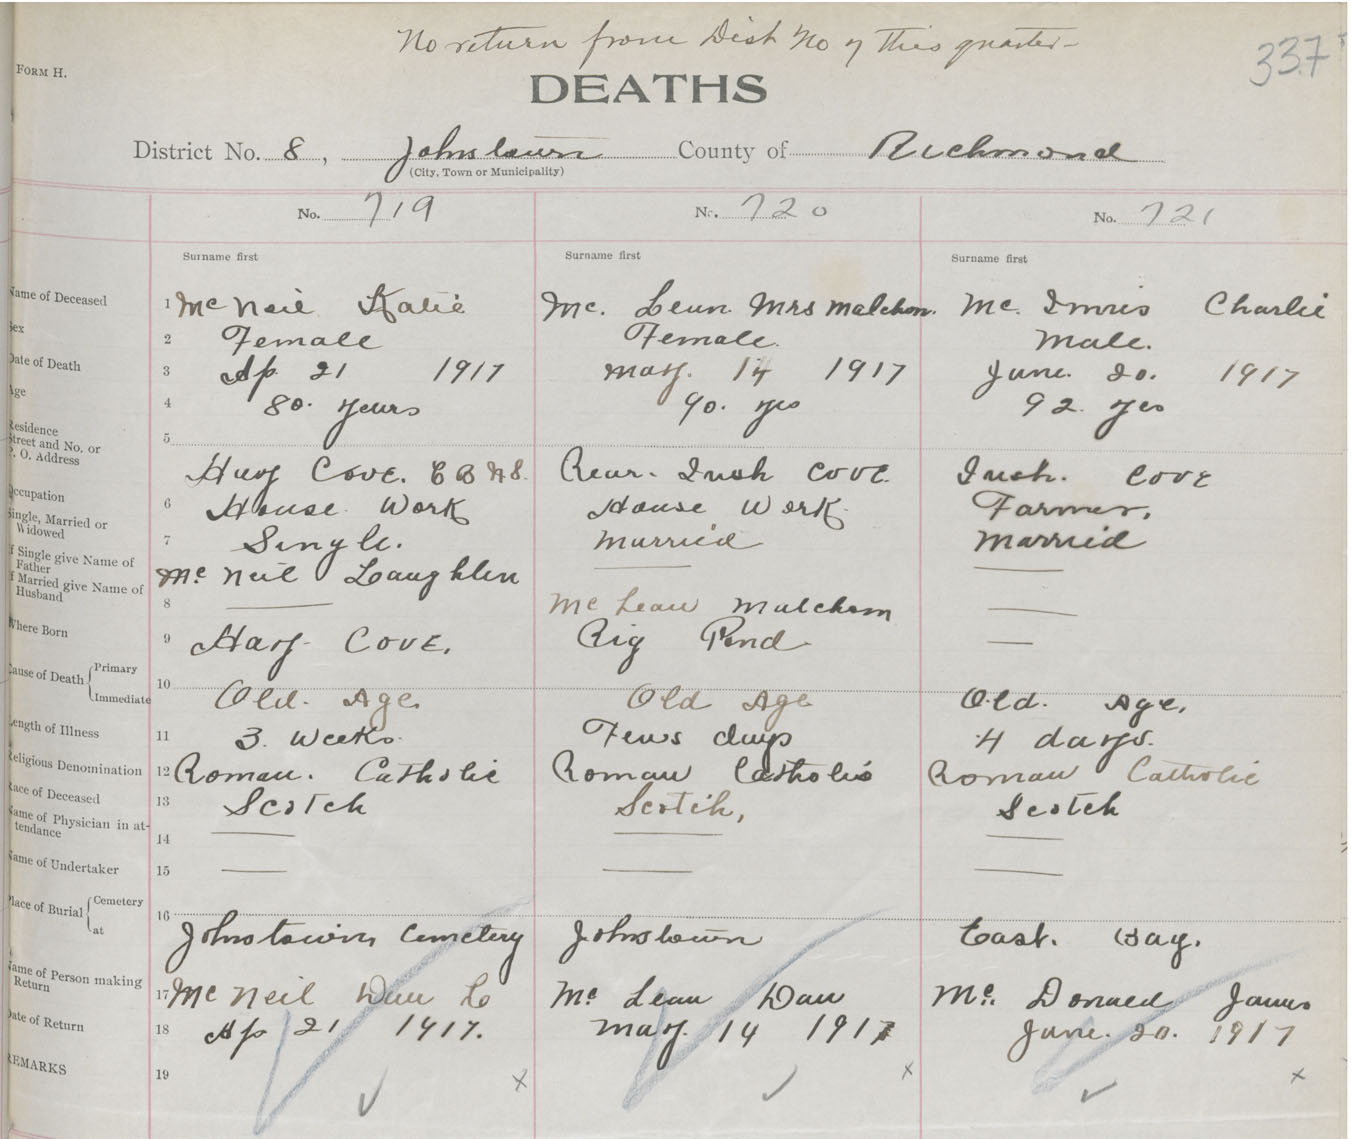 No return from Dist No 7 this quarter
337
FORM H.
DEATHS
District No. 8, Johnstown County of Richmond
(City, Town or Municipality)
No. 719 No. 720 No. 721
Surname first Surname first Surname first
Name of Deceased 1 Mc Neil Katie Mc. Lean Mrs Malchom. Mc. Innis Charlie
Sex 2 Female Female. Male.
Date of Death 3 Ap 21 1917 May. 14 1917 June. 20. 1917
Age 4 80. years 90. yrs 92. yrs
Residence
Street and No. or
P. O. Address 5
Hay Cove. C B N S. Rear. Irish Cove Irish. Cove
Occupation 6 House Work House Work Farmer.
Single, Married or
Widowed 7 Single. Married Married
If Single give Name of
Father Mc Neil Laughlin
If Married give Name of
Husband 8 Mc Lean Malchom
Where Born 9 Hay Cove. Big Pond
Cause of Death { Primary 10
Immediate Old. Age. Old Age Old. Age.
Length of Illness 11 3. Weeks Fews days 4 days.
Religious Denomination 12 Roman. Catholic Roman Catholic Roman Catholic
Race of Deceased 13 Scotch Scotch, Scotch
Name of Physician in at-
tendance 14
Name of Undertaker 15
Place of Burial { Cemetery 16
at Johnstown Cemetery Johnstown East. Bay.
Name of Person making
Return 17 Mc Neil Dan Mc Lean Dan Mc. Donald James
Date of Return 18 Ap 21 1917. May. 14 1917 June. 20. 1917
REMARKS 19 x x x